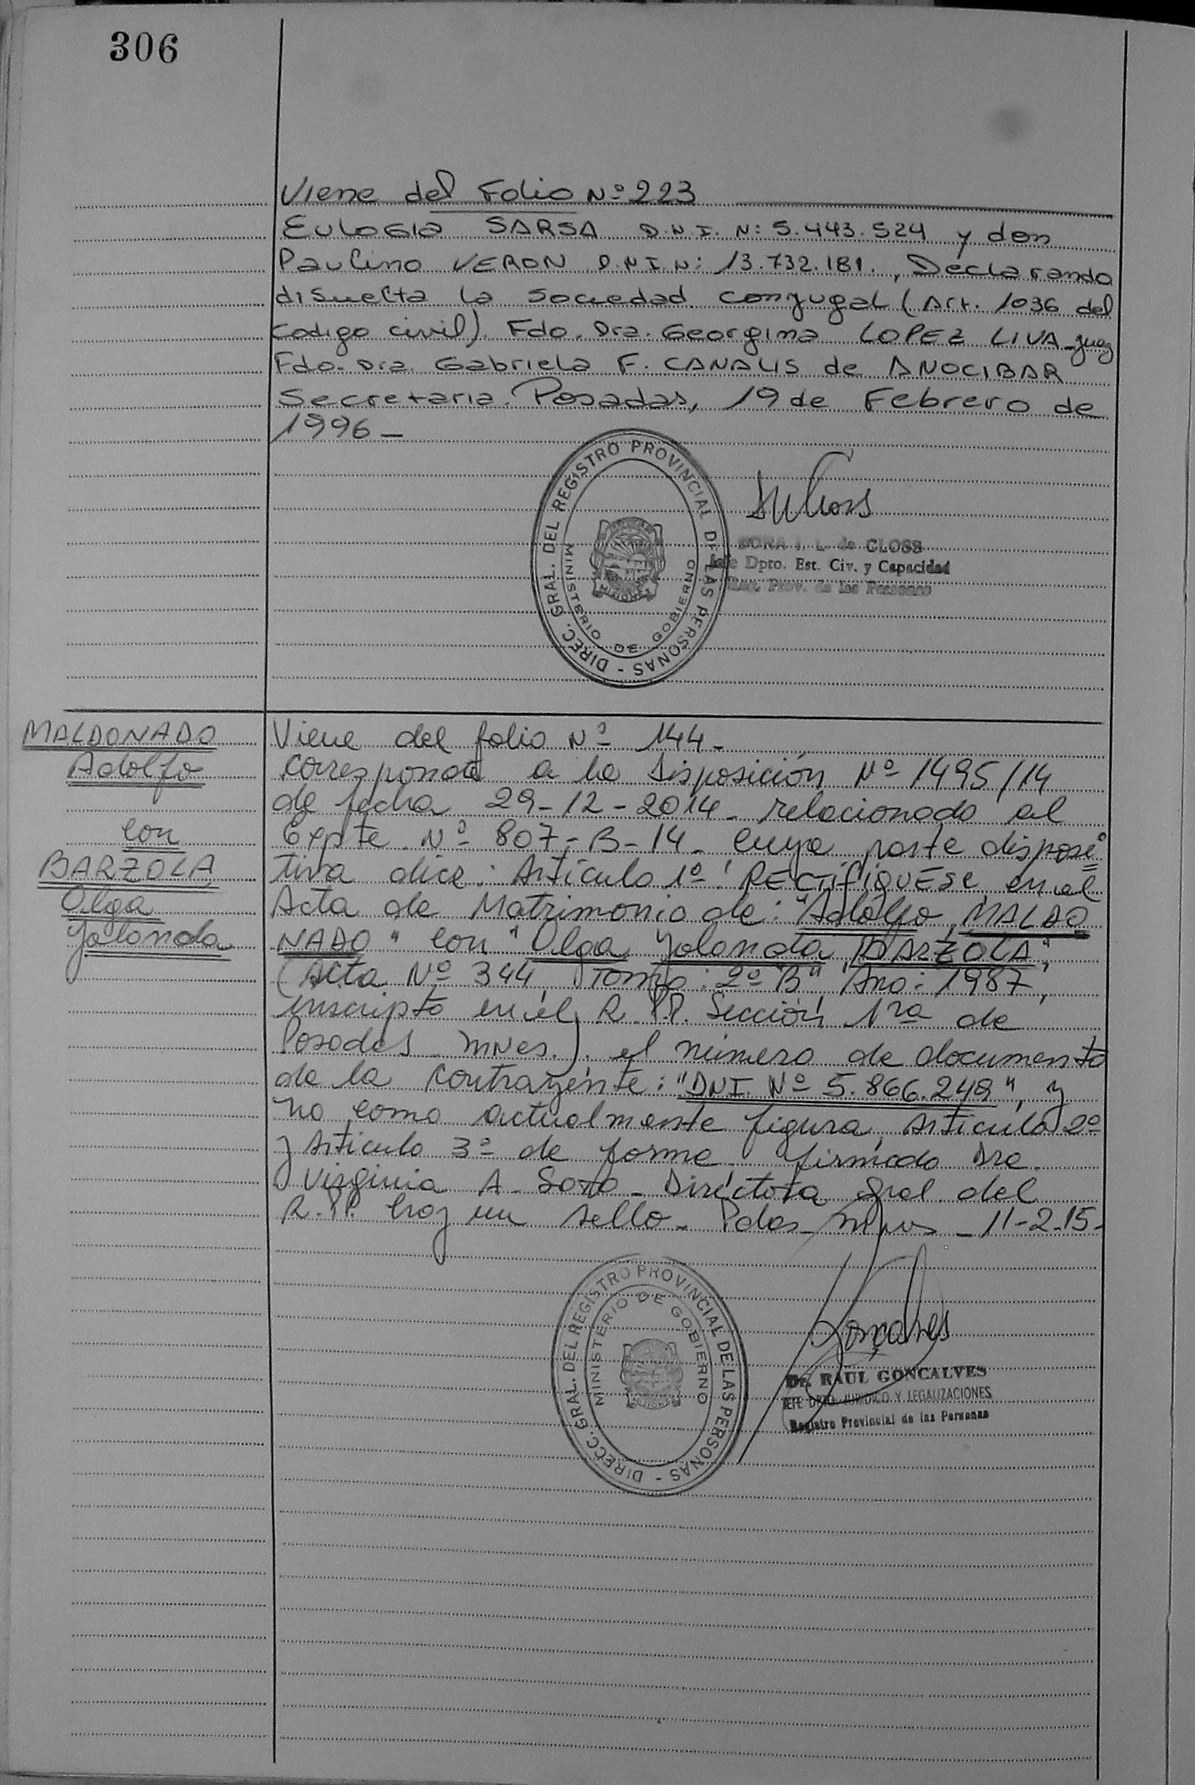 306
Viene del Folio Nº 223
Eulogia SARSA D.N.I. N: 5.443.524 y don
Paulino VERON D.N.I N: 13.732.181., Declarando
disuelta la Sociedad conyugal (Art. 1036 del
Codigo civil). Fdo. Dra. Georgina LOPEZ LIVA-juez
Fdo. Dra. Gabriela F. CANALIS de ANOCIBAR
Secretaria. Posadas, 19 de Febrero de
1996-
DIREC. GRAL. DEL REGISTRO PROVINCIAL DE LAS PERSONAS -
MINISTERIO DE GOBIERNO
MISIONES
L. de GLOSS
Jefe Dpto. Est. Civ. y Capacidad
Reg. Prov. de las Personas
MALDONADO
Adolfo
con
BARZOLA
Olga
Yolanda
Viene del folio Nº 144-
corresponde a la Disposición Nº 1495/14
de fecha 29-12-2014- relacionado al
Expte. Nº 807-B-14- cuya parte disposi
tiva dice: Artículo 1º: RECTIFIQUESE en el
Acta de Matrimonio de: "Adolfo MALDO
NADO" con "Olga Yolanda BARZOLA",
(Acta Nº 344 Tomo: 2º "B" Año: 1987,
inscripto en el R.P.P. Sección 1ra de
Posadas - Mnes.). el número de documento
de la contrayente: "DNI. Nº 5.866.249", y
no como actualmente figura, Artículo 2º
y Artículo 3º de forma. firmado Dra.
Virginia A. Soto - Directora Gral. del
R.P.P. hay un sello- Pdas- Mnes - 11-2-15-
DIRECC. GRAL. DEL REGISTRO PROVINCIAL DE LAS PERSONAS -
MINISTERIO DE GOBIERNO
MISIONES
Goncalves
Dr. RAUL GONCALVES
JEFE DPTO. JURIDICO Y LEGALIZACIONES
Registro Provincial de las Personas